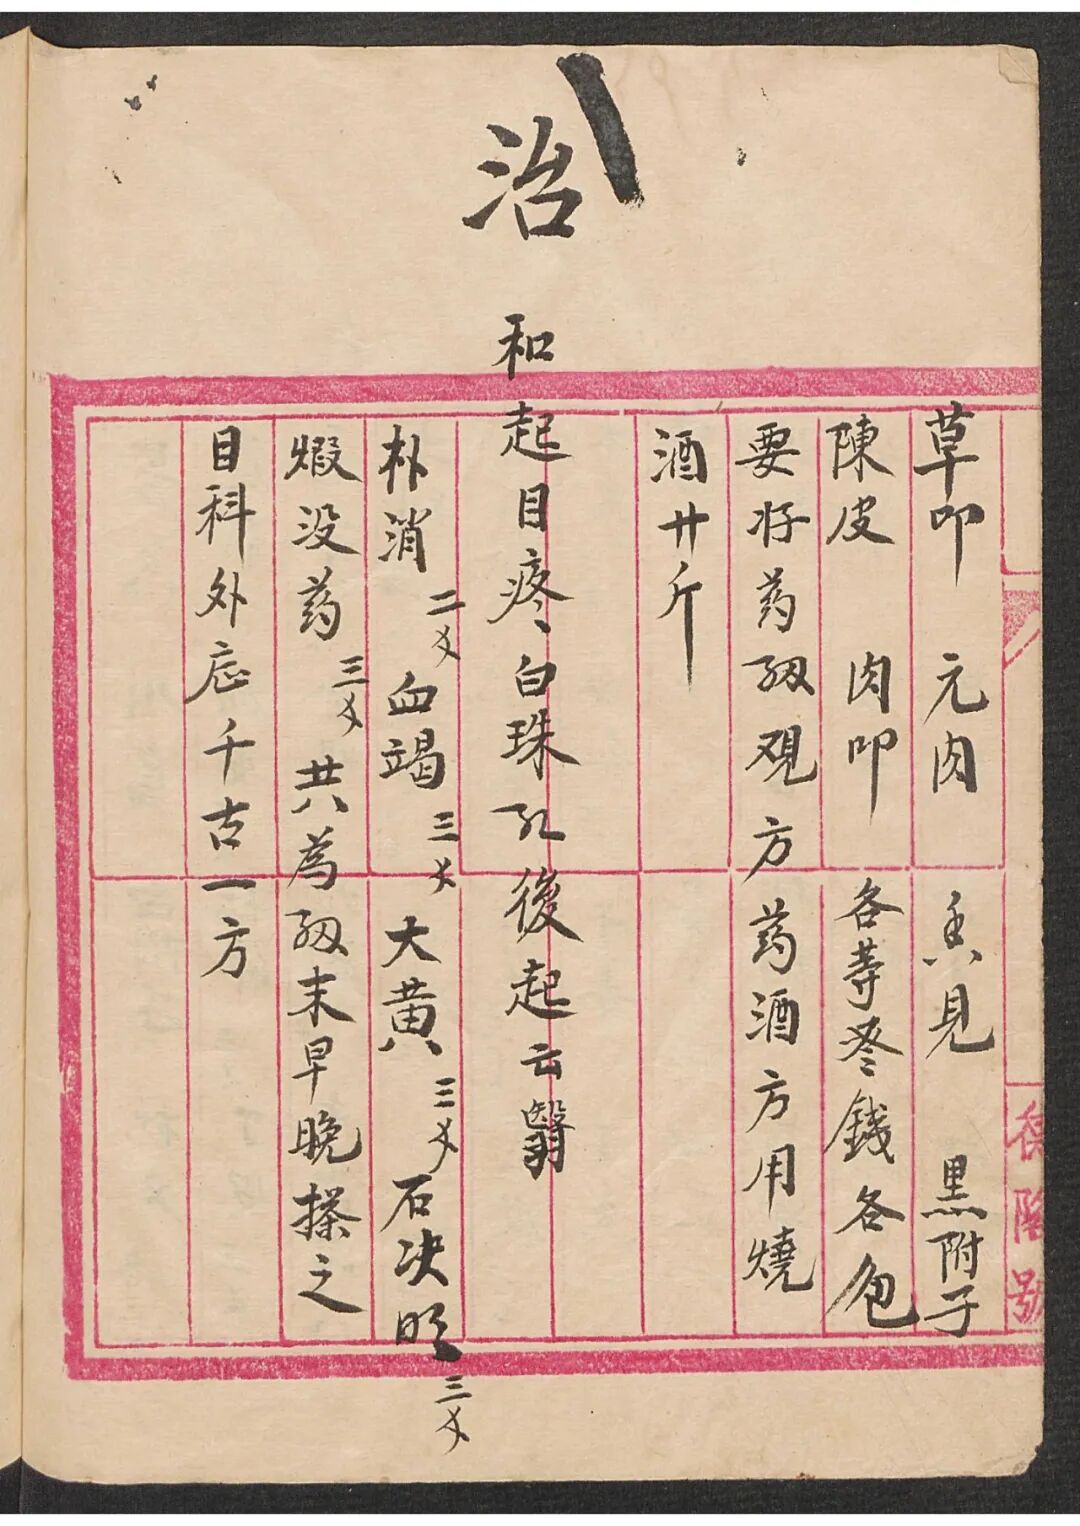 草叩 元肉 見 黑附子
陳皮 肉叩 各等 錢各包
要将药 方药酒方用燒
酒廿斤
治
和起目疼白珠孔後起云翳
朴消二㐅 血竭三㐅 大黄三㐅 石决明三㐅
煆没药三㐅 共為 末早晚搽之
目科外 千古一方
號